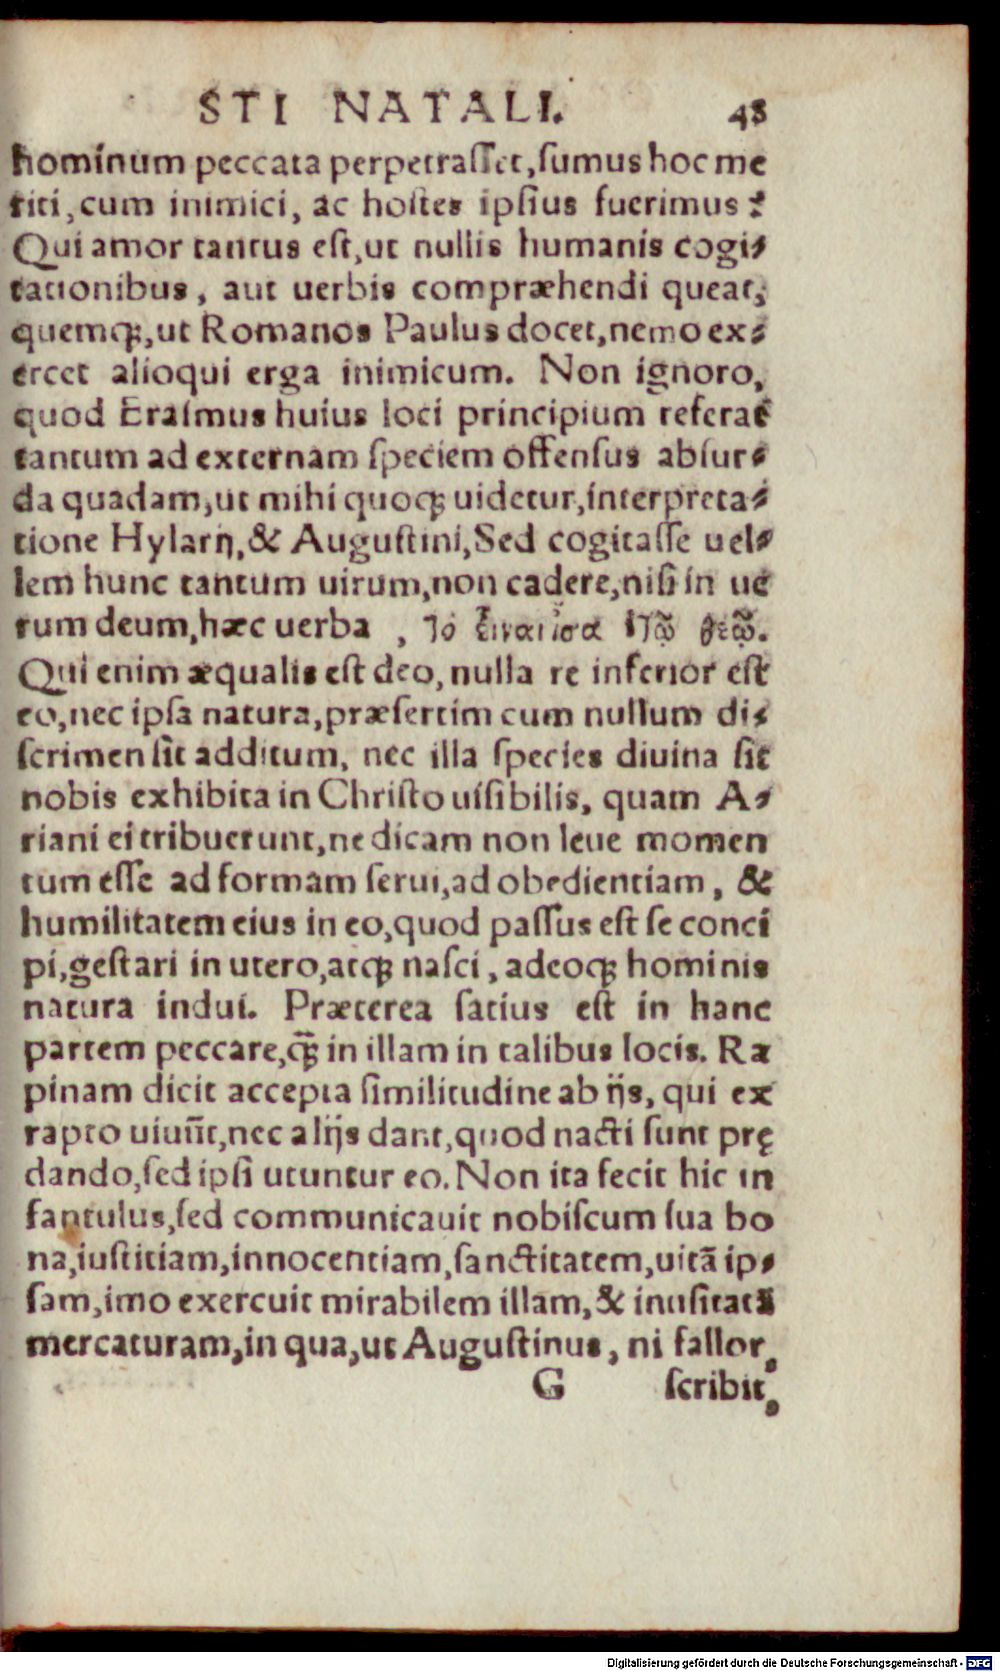 STI NATALI. 48
hominum peccata perpetrasset, sumus hoc me
riti, cum inimici, ac hostes ipsius fuerimus?
Qui amor tantus est, ut nullis humanis cogi⸗
tationibus, aut uerbis compræhendi queat,
quemq;, ut Romanos Paulus docet, nemo ex⸗
ercet alioqui erga inimicum. Non ignoro,
quod Erasmus huius loci principium referat
tantum ad externam speciem offensus absur⸗
da quadam, ut mihi quoq; uidetur, interpreta⸗
tione Hylarij, & Augustini, Sed cogitasse uel⸗
lem hunc tantum uirum, non cadere, nisi in ue
rum deum, hæc uerba, τὸ εἶναι ἴσα τῷ θεῷ.
Qui enim æqualis est deo, nulla re inferior est
eo, nec ipsa natura, præsertim cum nullum di⸗
scrimen sit additum, nec illa species diuina sit
nobis exhibita in Christo uisibilis, quam A⸗
riani ei tribuerunt, ne dicam non leue momen
tum esse ad formam serui, ad obedientiam, &
humilitatem eius in eo, quod passus est se conci
pi, gestari in utero, atq; nasci, adeoq; hominis
natura indui. Præterea satius est in hanc
partem peccare, q̃; in illam in talibus locis. Ra
pinam dicit accepta similitudine ab ijs, qui ex
rapto uiuũt, nec alijs dant, quod nacti sunt prę
dando, sed ipsi utuntur eo. Non ita fecit hic in
fantulus, sed communicauit nobiscum sua bo
na, iustitiam, innocentiam, sanctitatem, uitã ip⸗
sam, imo exercuit mirabilem illam, & inusitatã
mercaturam, in qua, ut Augustinus, ni fallor,
G scribit,
Digitalisierung gefördert durch die Deutsche Forschungsgemeinschaft - DFG